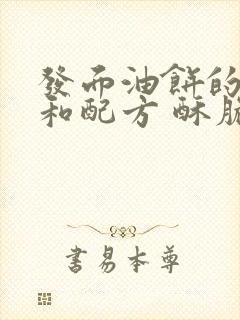 發而油餅的
和配方 酥脆
書易本尊